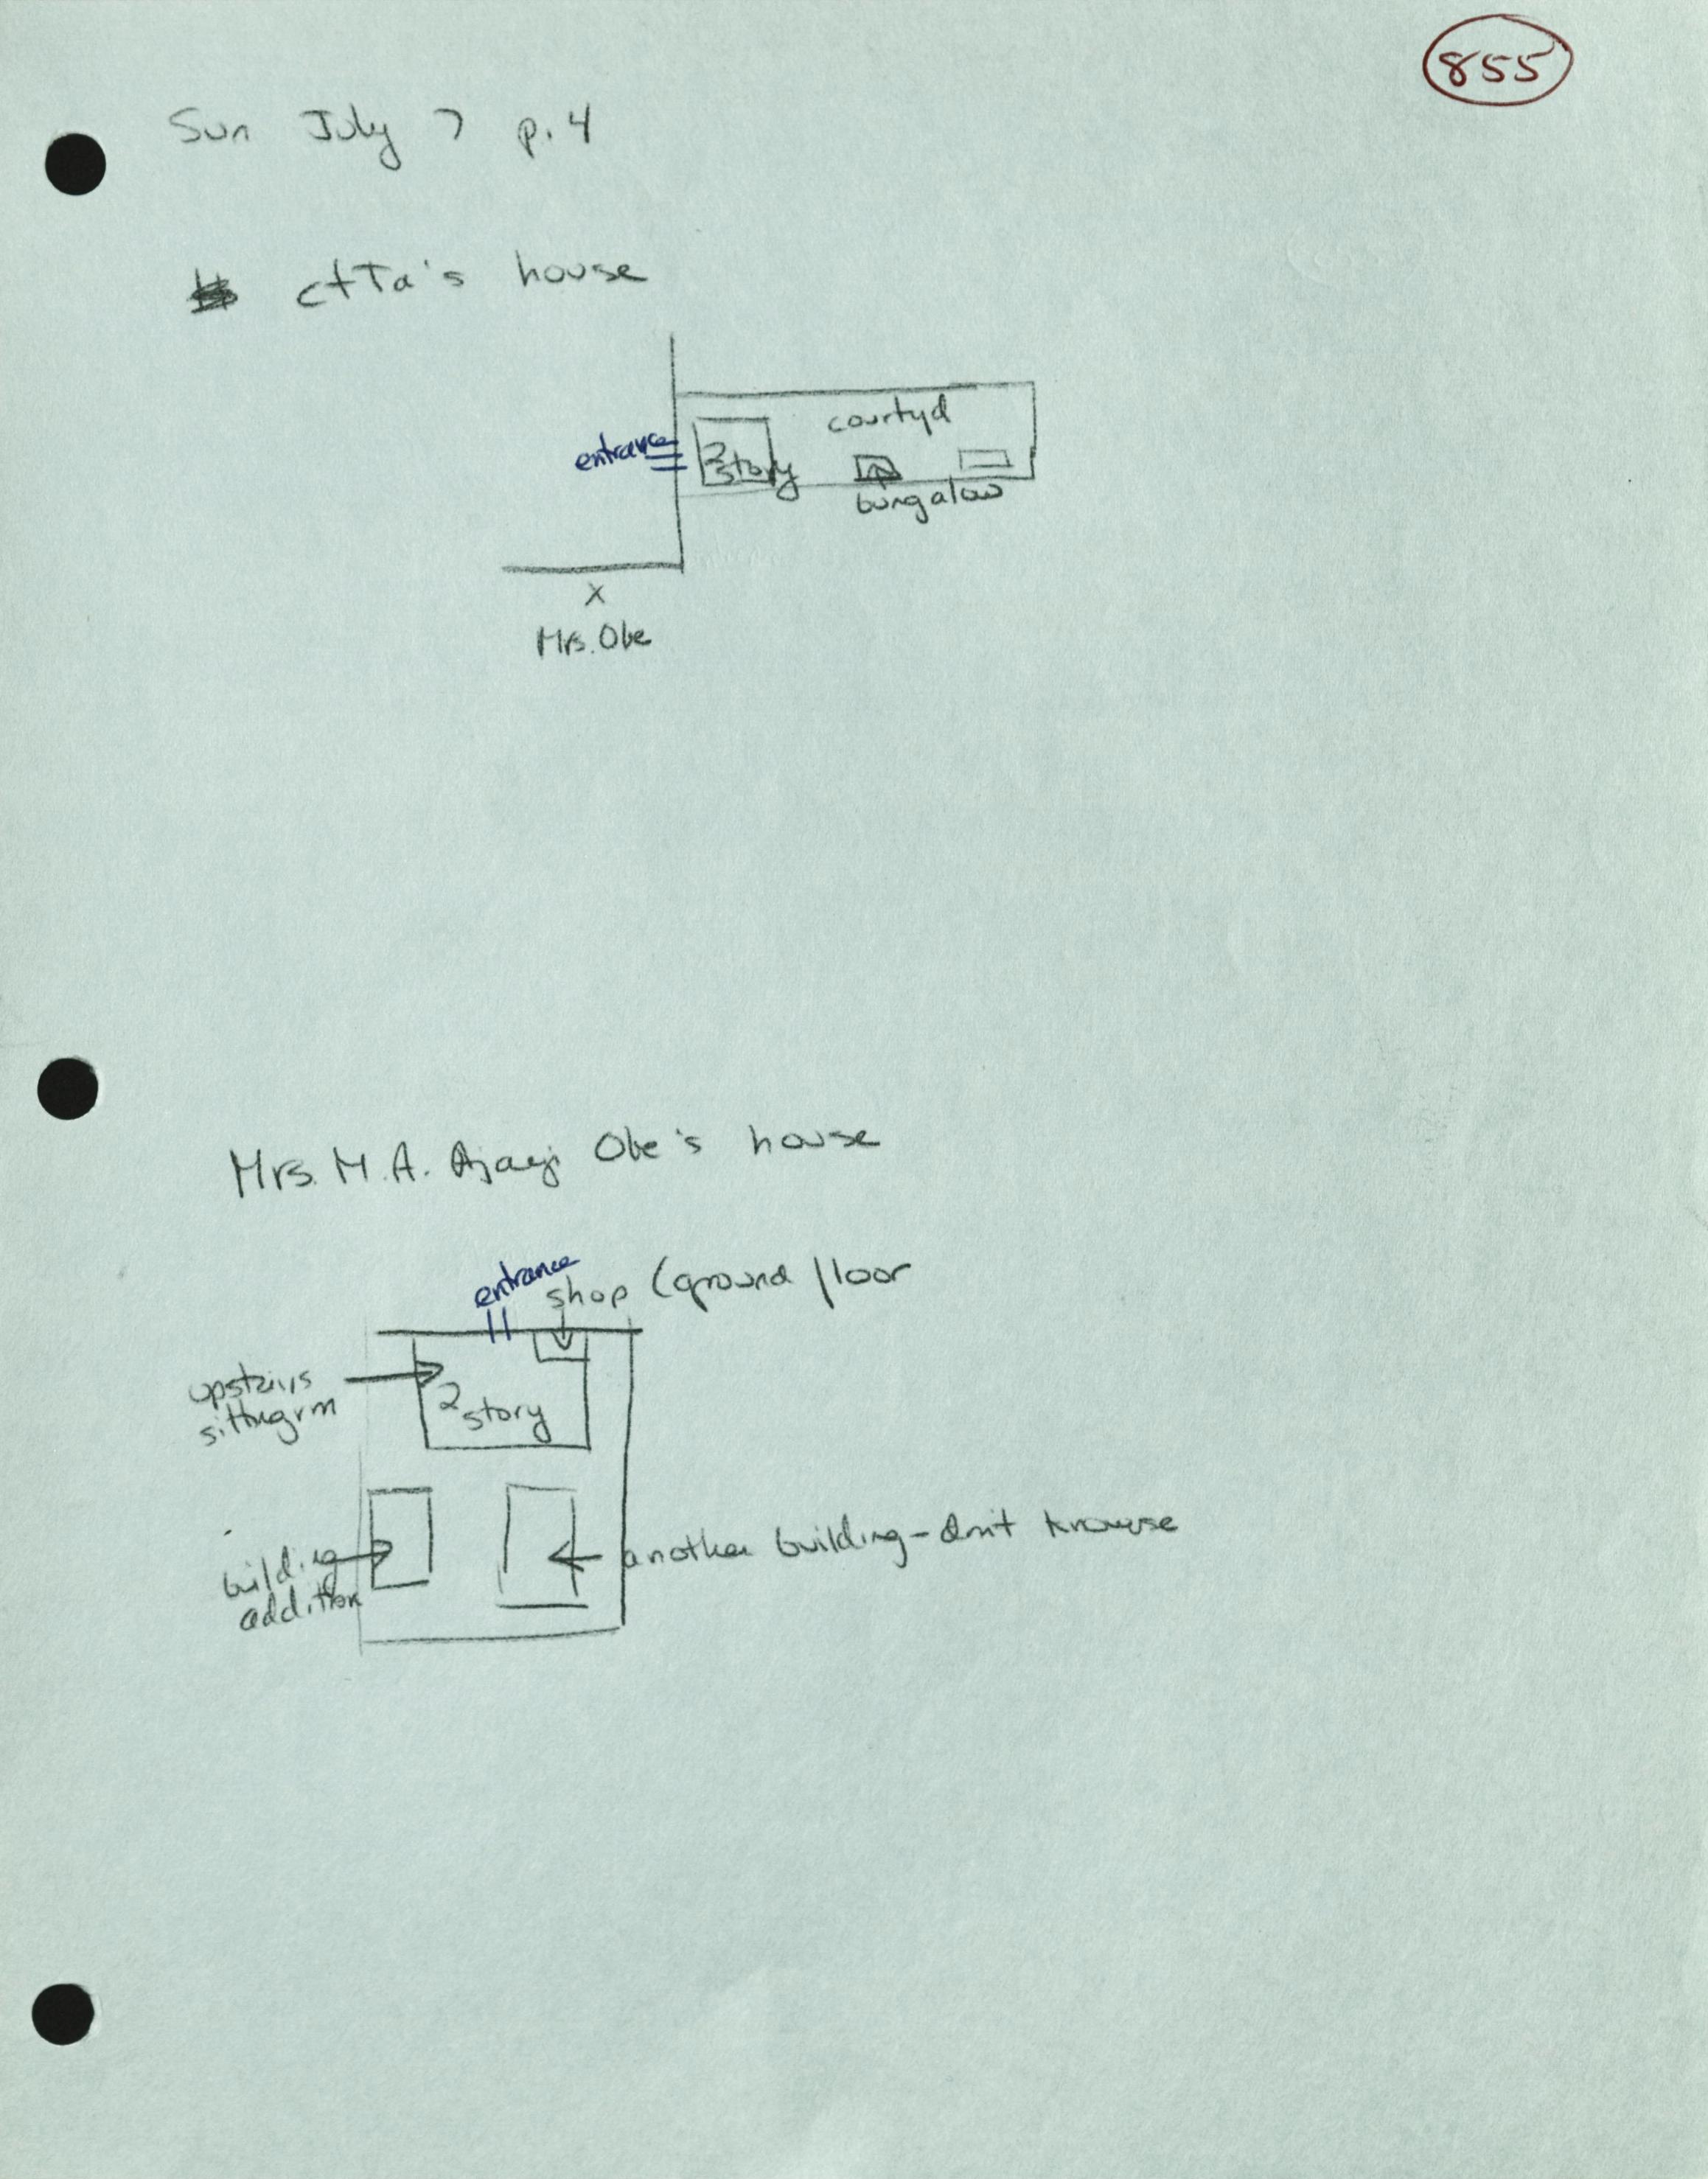 855
Sun July 7 p. 4
ctTa's house
courtyd
entrance
2
story
bungalow
X
Mrs. Obe
Mrs. M. A. Ajayi Obe's house
entrance
shop (ground floor
upstairs
sittngrm
2
story
another building - don't know use
building
addition